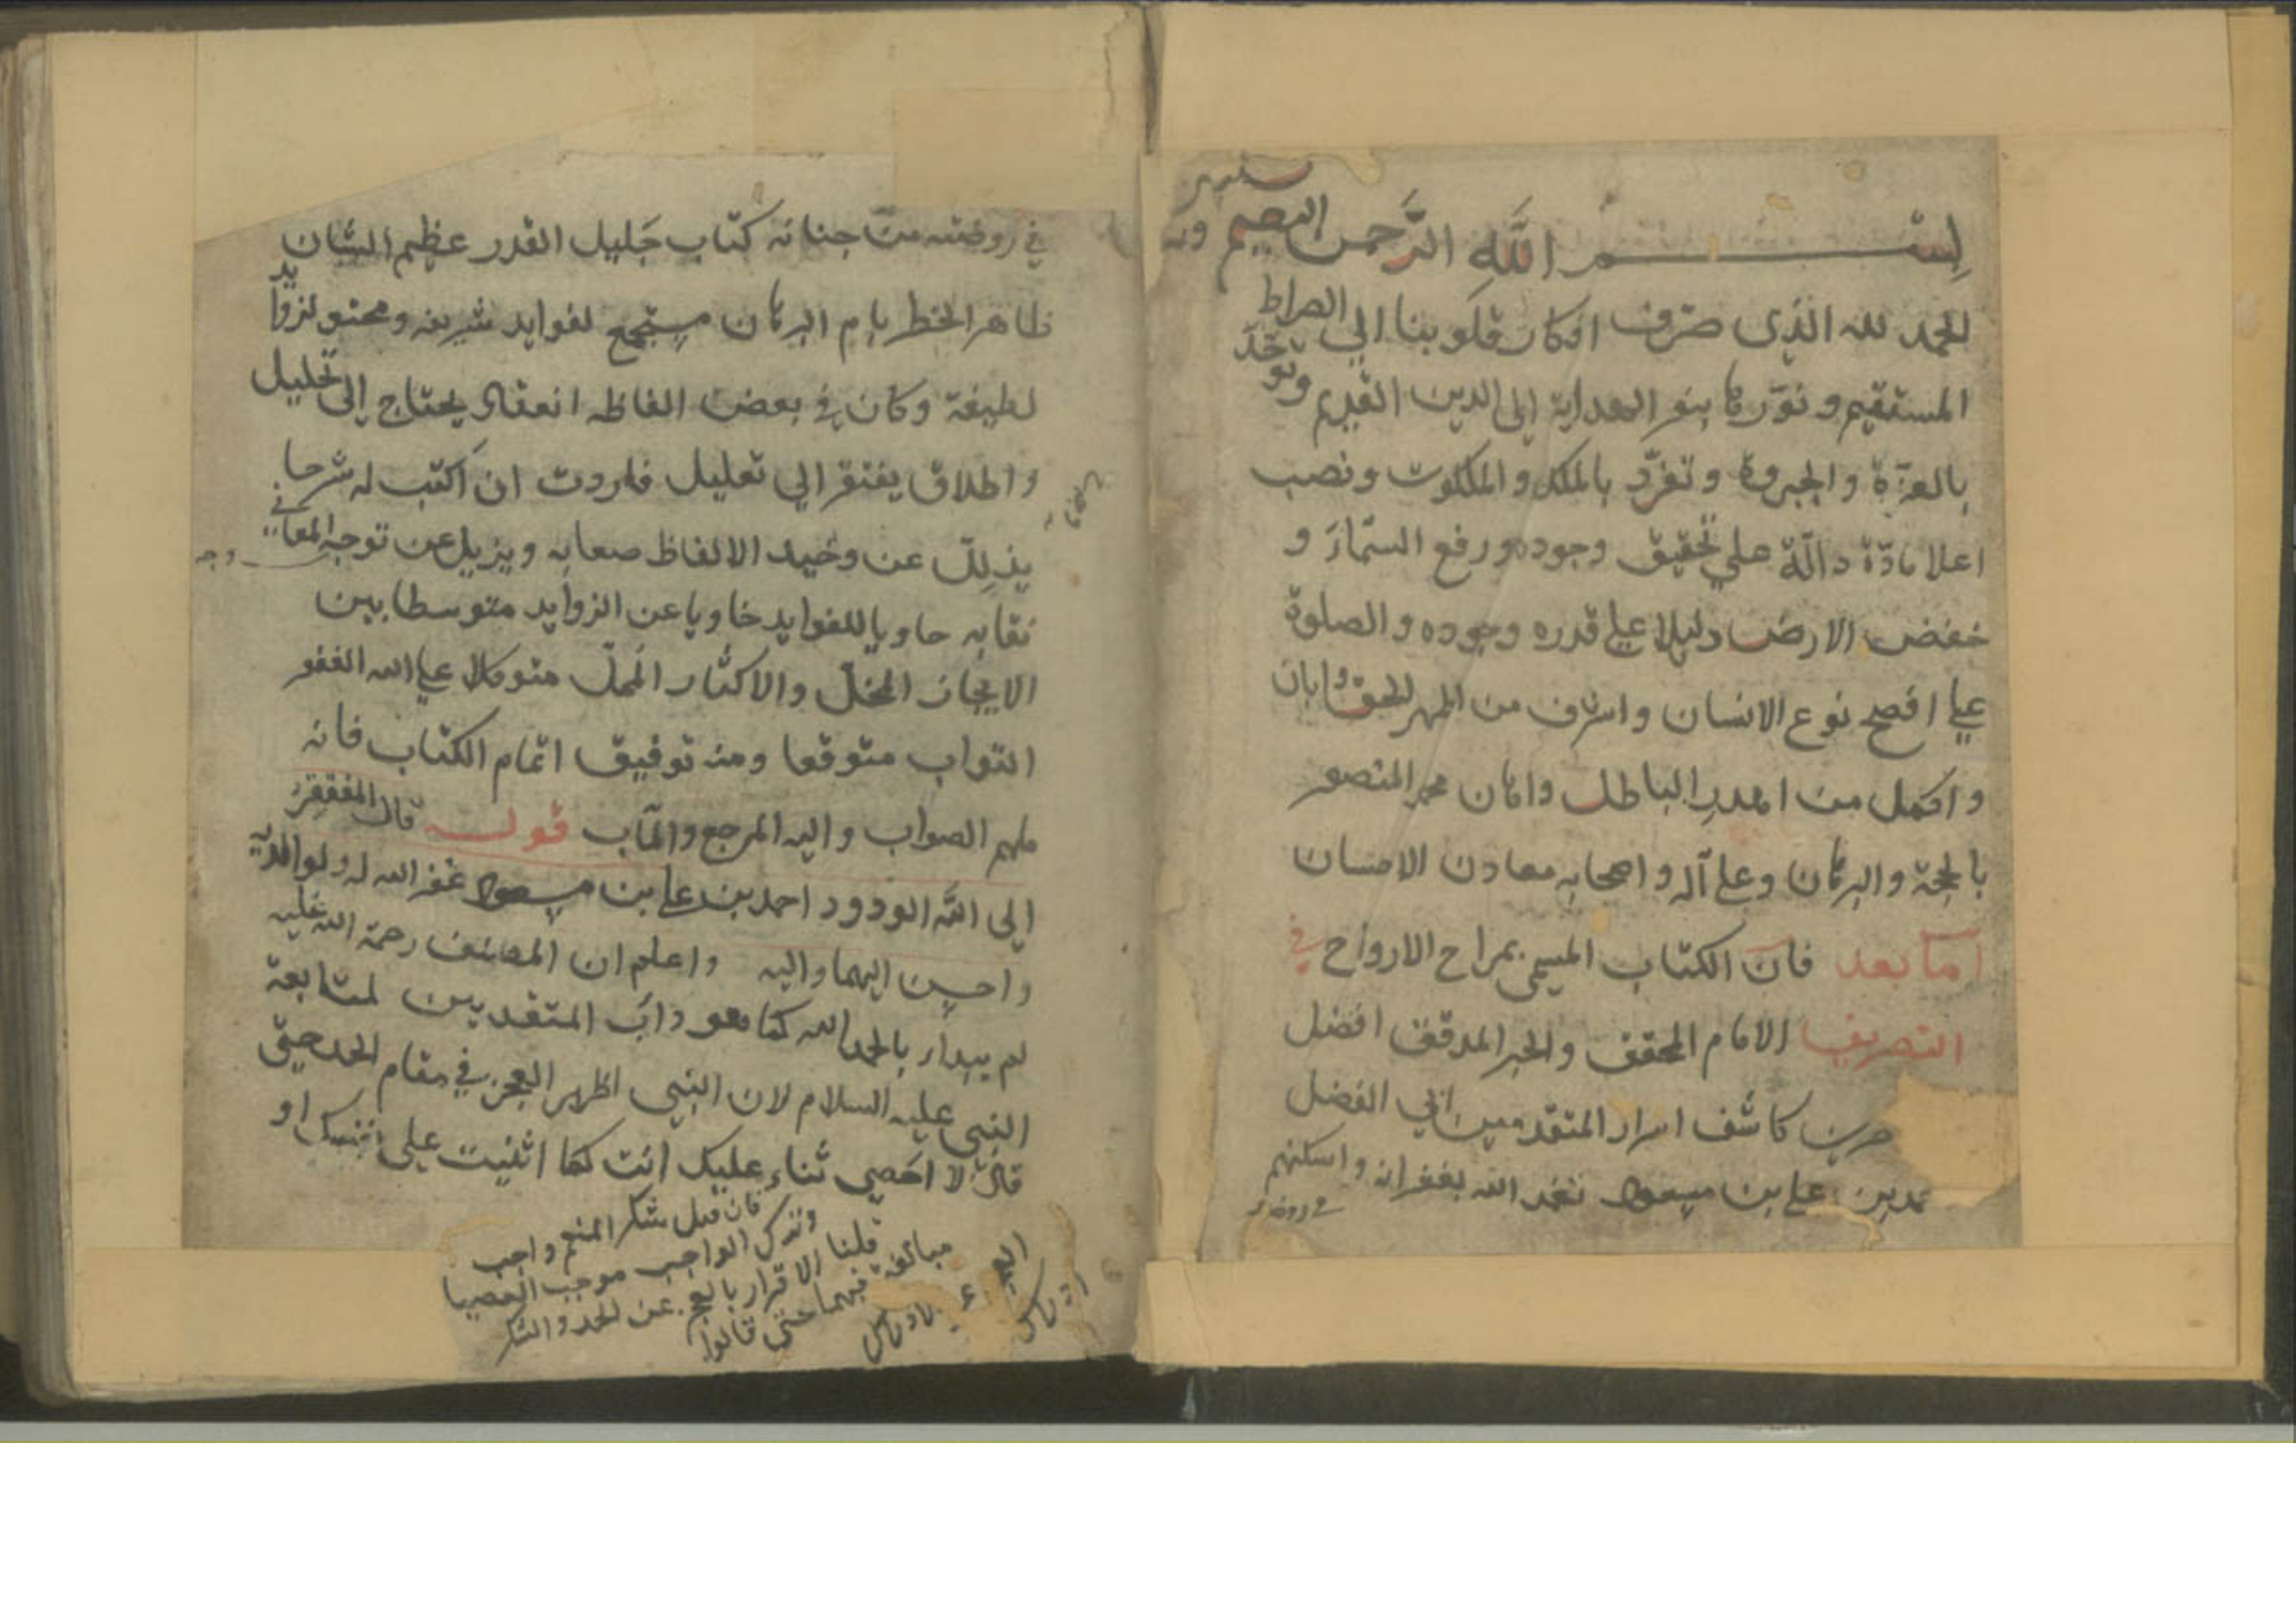 بسم الله الرحمن الرحيم وبه
الحمد لله الذى صرف افكار قلوبنا الي الصراط
المستقيم و نورها بنور الهداية الى الدين القديم وتوحد
بالعزة والجبروة وتفرد بالملك والملكوت ونصب
اعلا مادة دالة علي تحقيق وجوده ورفع السماء و
خفض الارض دليلا على قدره وجوده والصلوة
على افصح نوع الانسان واشرف من اظهر الحق وابان
واكمل من اهدر الباطل واهان محمد المنصور
بالحجة والبرهان وعلى آله واصحابه معادن الاحسان
اما بعد فان الكتاب المسمى بمراح الارواح في
التصريف الامام المحقق والحبر المدقق افضل
كاشف اسرار المتقدمين ابي الفضل
بن على بن مسعود تغمد الله بغفرانه واسكنهم
في روضته من جنانه كتاب جليل القدر عظيم الشان
ظاهر الخطر باهر البرهان مستجمع لفوايد شريفه ومحتو لزوايد
لطيفة وكان في بعض الفاظه انعقاد يحتاج الى تحليل
واطلاق يفتقر الي تعليل فاردت ان اكتب له شرحا
يذلل عن وخيد الالفاظ صعابه ويزيل عن توجه المعاني
وجه
نقابه حاويا للفوايد خاويا عن الزوايد متوسطا بين
الايجاز المخل والاكثار الممل متوكلا على الله الغفور
التواب متوقعا ومنه توفيق اتمام الكتاب فانه
ملهم الصواب واليه المرجع والمآب قوله قال المفتقر
الى الله الودود احمد بن على بن مسعود غفر الله له ولوالديه
واحسن اليهما واليه واعلم ان المصنف رحمة الله عليه
لم يبدأ بالحمد الله كما هو داب المتقدمين لمتابعة
النبي عليه السلام لان النبي اظهر العجز في مقام الحمد حتى
قال لا احصي ثناء عليك انت كما اثنيت على نفسك او
فان قيل شكر المنعم واجب
وترك الواجب موجب العصيا
قلنا الاقرار بالعجز عن الحمد والشكر
مبالغة فيهما حتى قالوا